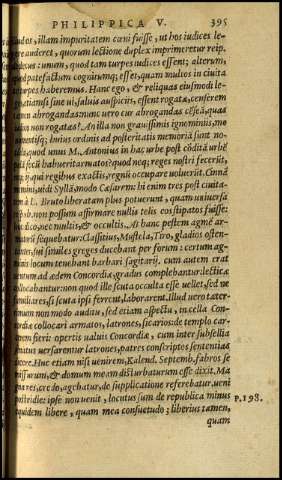 PHILIPPICA V. 395
illam impuritatem cœni fuisse, ut hos iudices le-
gere auderet, quorum lectione duplex imprimeretur reip.
unum, quod tam turpes iudices essent: alterum,
cognitumq; esset, quam multos in ciuitate
turpes haberemus. Hanc ergo, & reliquas eiusmodi le-
etiamsi sine ui, saluis auspicijs, essent rogatæ, censerem
abrogandas: nunc uero cur abrogandas cẽseã, quas
non rogatas? An illa non grauissimis ignominijs, mo
huius ordinis ad posteritatis memoriã sunt no-
quod unus M. Antonius in hac urbe post cõditã urbẽ
secũ habuerit armatos? quod neq; reges nostri fecerũt,
qui regibus exactis, regnũ occupare uoluerũt. Cinnã
memini, uidi Syllã, modo Cæsarem: hi enim tres post ciuita-
à L. Bruto liberatam plus potuerunt, quam uniuersa
non possum affirmare nullis telis eos stipatos fuisse:
dico, nec multis, & occultis. At hanc pestem agmẽ ar-
sequebatur: Classitius, Mustela, Tiro, gladios osten-
sui similes greges ducebant per forum: certum ag-
locum tenebant barbari sagittarij. cum autem erat
uentum ad ædem Concordiæ, gradus complebantur: lecticæ
collocabantur: non quod ille scuta occulta esse uellet, sed ne
familiares, si scuta ipsi ferrent, laborarent. Illud uero tæter-
rimum non modo auditu, sed etiam aspectu, in cella Con-
cordiæ collocari armatos, latrones, sicarios: de templo car-
cerem fieri: opertis ualuis Concordiæ, cum inter subsellia
uersarentur latrones, patres conscriptos sententias
dicere. Huc etiam nisi uenirem, Kalend. Septemb. fabros se
missurum, & domum meam disturbaturum esse dixit. Ma
gna res, credo, agebatur, de supplicatione referebat. ueni
postridie: ipse non uenit, locutus sum de republica minus
equidem libere, quam mea consuetudo; liberius tamen, P.198.
quam